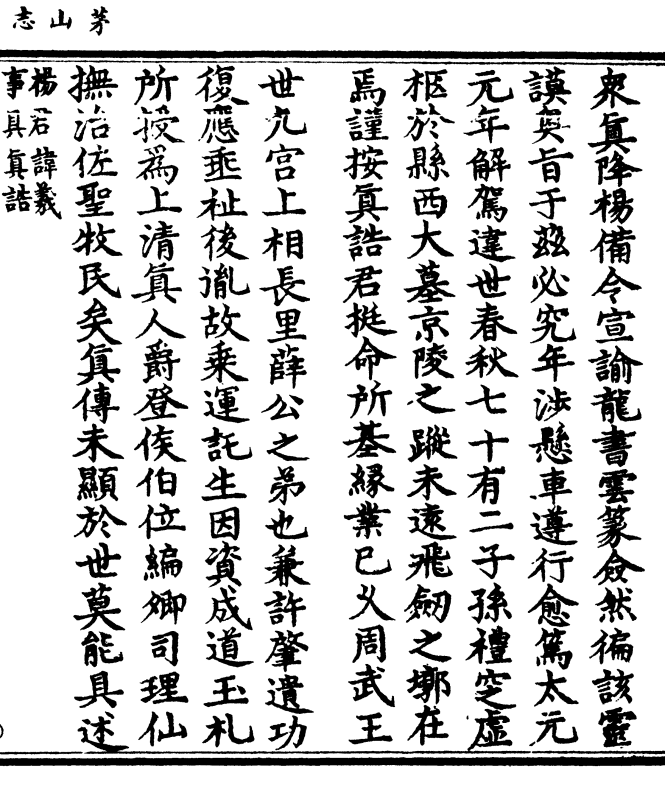 茅山志
衆眞降楊備令宣諭龍書雲篆僉然徧該靈
謨奥旨于茲必究年涉懸車遵行愈篤太元
元年解駕違世春秋七十有二子孫禮窆虛
柩於縣西大墓京陵之蹤未遠飛劒之墎在
焉謹按眞誥君挺命所基緣業已乆周武王
世九宮上相長里薛公之弟也兼許肇遺功
復應垂祉後胤故乗運託生因資成道玉札
所授爲上清眞人爵登侯伯位編卿司理仙
撫治佐聖牧民矣眞傳未顯於世莫能具述
楊君諱羲
事具眞誥